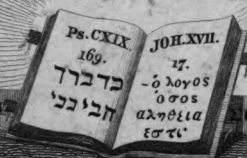 Ps. CXIX.
169.
כדברך
הביכני
JOH. XVII.
17.
-ὁ λογος
ὁ σος
αληθεια
εσ τι·